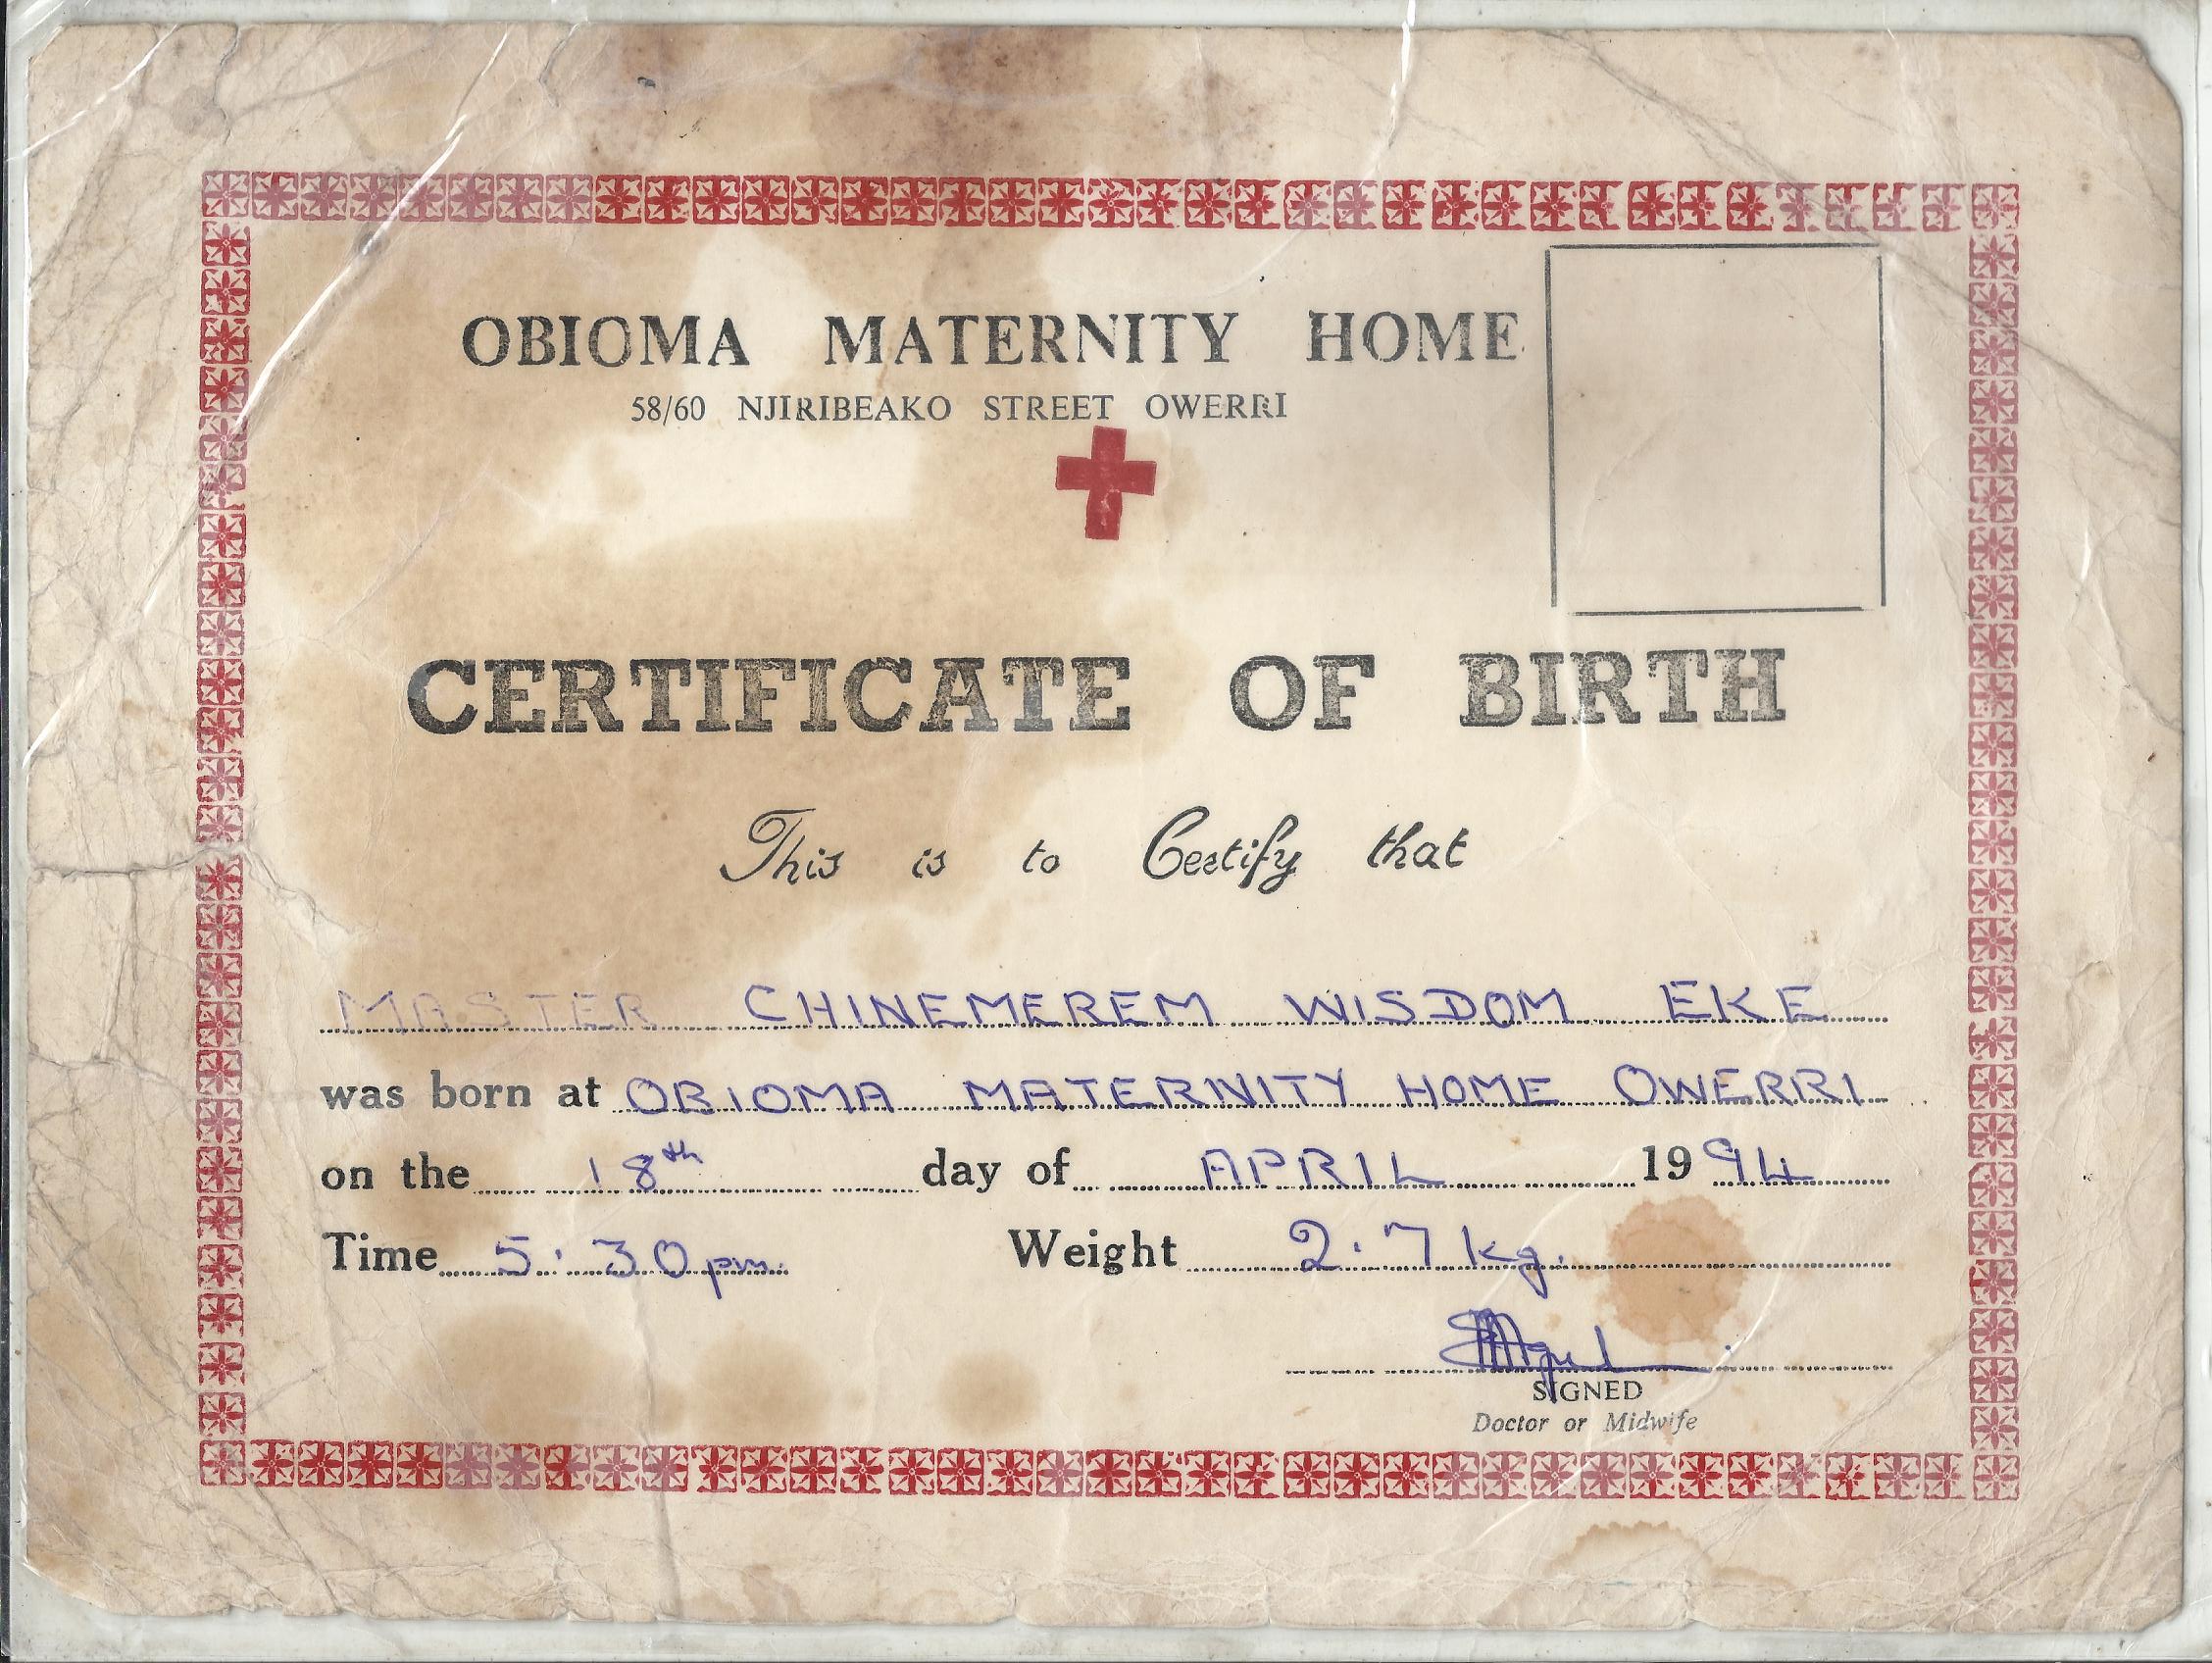 OBIOMA MATERNITY HOME
58/60 NJIRIBEAKO STREET OWERRI
CERTIFICATE OF BIRTH
This is to Certify that
MASTER CHINEMEREM WISDOM EKE
was born at OBIOMA MATERNITY HOME OWERRI
on the 18th day of APRIL 1994
Time 5:30pm. Weight 2.7kg.
SIGNED
Doctor or Midwife